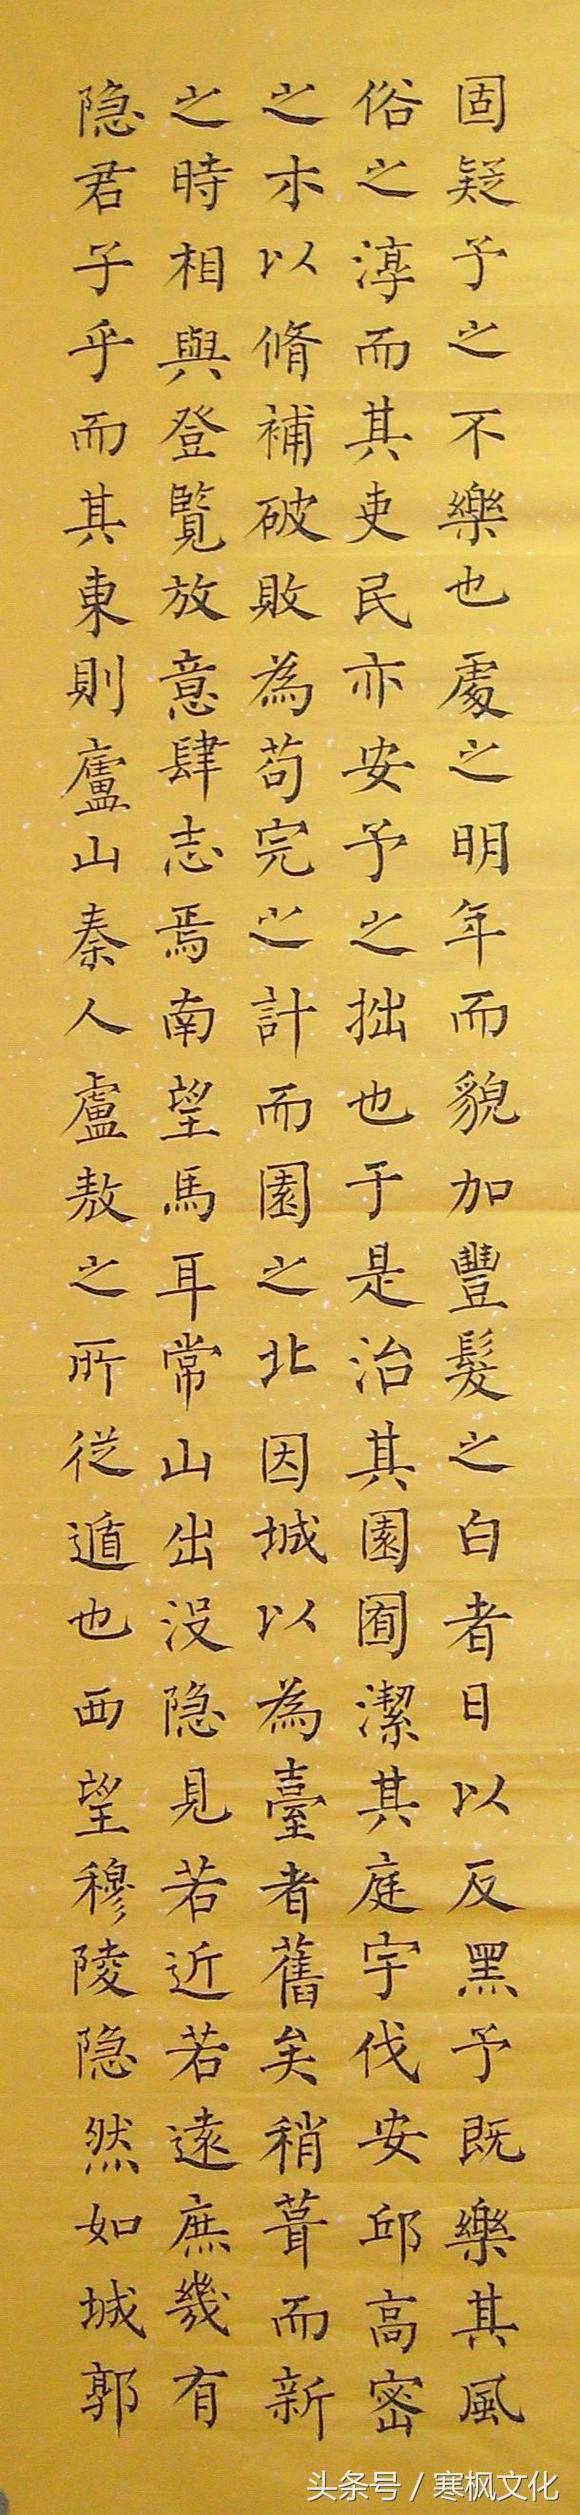 固疑予之不樂也處之明年而貌加豐髮之白者日以反黑予既樂其風
俗之淳而其吏民亦安予之拙也于是治其園囿潔其庭宇伐安邱高密
之木以脩補破敗為苟完之計而園之北因城以為臺者舊矣稍葺而新
之時相與登覽放意肆志焉南望馬耳常山出没隐見若近若遠庶幾有
隐君子乎而其東則廬山秦人盧敖之所從遁也西望穆陵隐然如城郭
头条号/寒枫文化